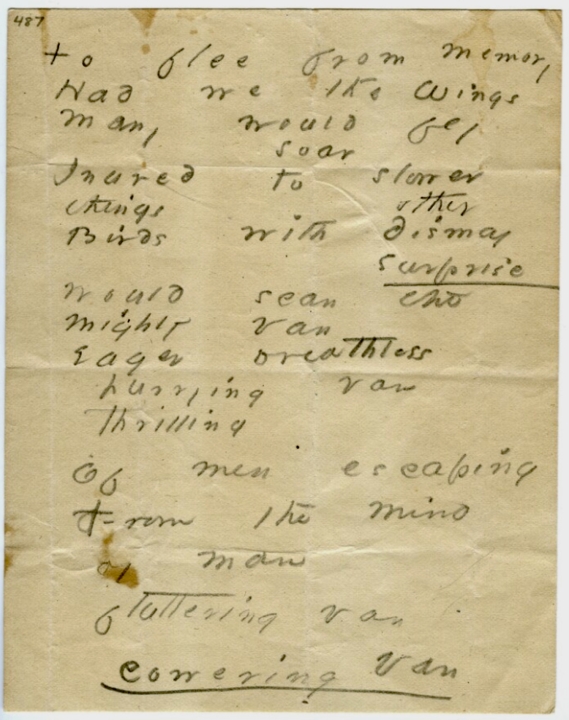 487
to flee from memory
Had we the Wings
Many would fly
soar
Inured to slower
things other
Birds with dismay
surprise
Would scan the
mighty Van
Eager breathless
hurrying van
thrilling
Of men escaping
From the Mind
of man
fluttering van
cowering Van